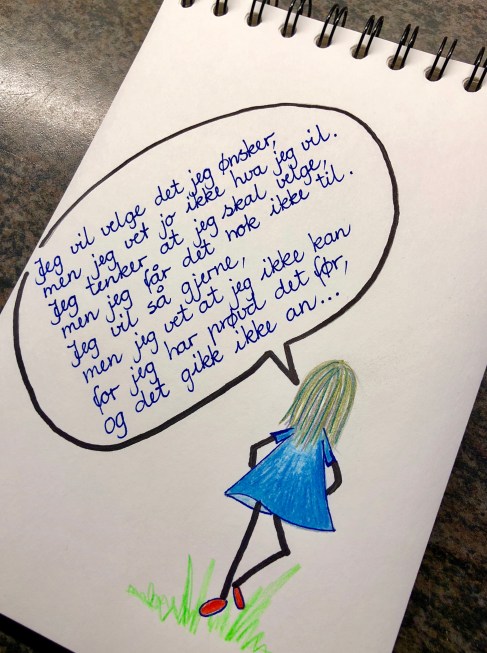 Jeg vil velge det jeg ønsker,
men jeg vet jo ikke hva jeg vil.
Jeg tenker at jeg skal velge,
men jeg får det nok ikke til.
Jeg vil så gjerne,
men jeg vet at jeg ikke kan
for jeg har prøvd det før,
og det gikk ikke an...